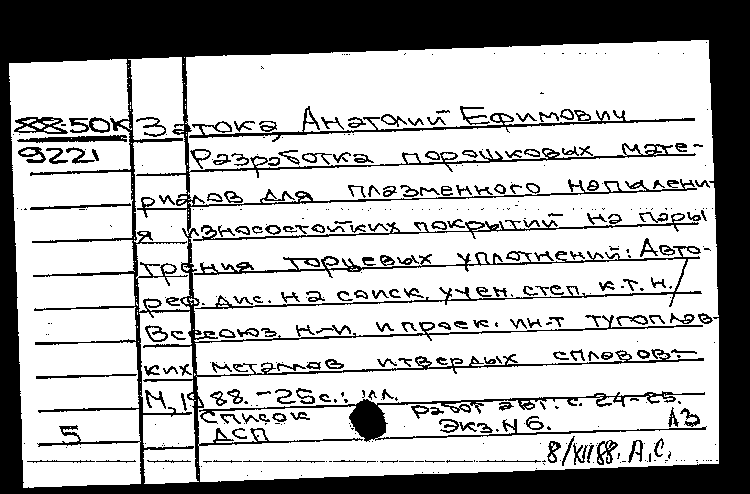 88-50К Затока, Анатолий Ефимович
9221 Разработка порошковых мате-
риалов для плазменного напылени-
я износостойких покрытий на пары
трения торцевых уплотнений: Авто-
реф. дис. на соиск. учен. степ. к.т.н. /
Всесоюз. н-и. и проек. ин-т тугоплав-
ких металлов и твердых сплавов.-
М., 1988. - 25с.: ил.
Список работ авт.: с. 24-25.
5 ДСП Экз. N 6. АЗ
8/XII 88. А.С.